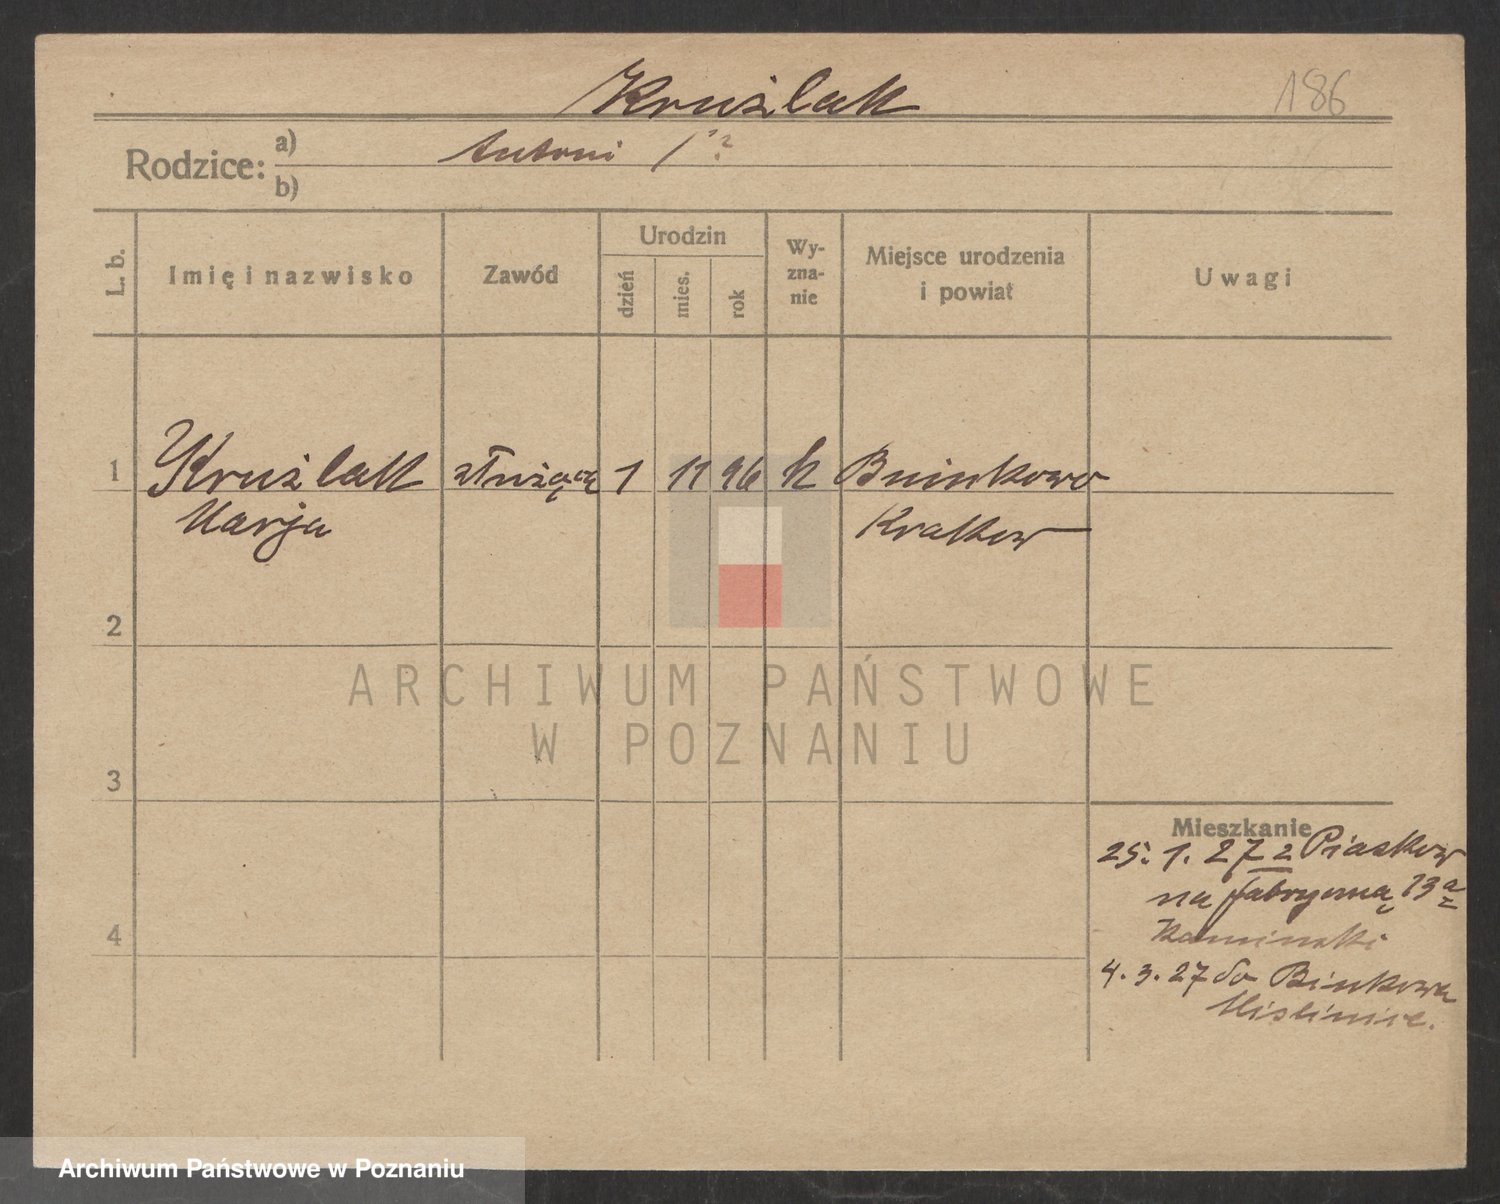 Kruźlak
186
Rodzice:
a) Antoni / ??
b)
L. b.
Imię i nazwisko
Zawód
Urodzin
dzień
mies.
rok
Wy-
zna-
nie
Miejsce urodzenia
i powiat
Uwagi
1 Kruźlak służącą 1 11 96 k
Marja Krakow
2
3
4
Mieszkanie
25. 1. 27 z Piaskow
na fabryczną 13a
Kaminski
4. 3. 27 do Binkowa
Mislinice.
ARCHIWUM PAŃSTWOWE
W POZNANIU
Archiwum Państwowe w Poznaniu